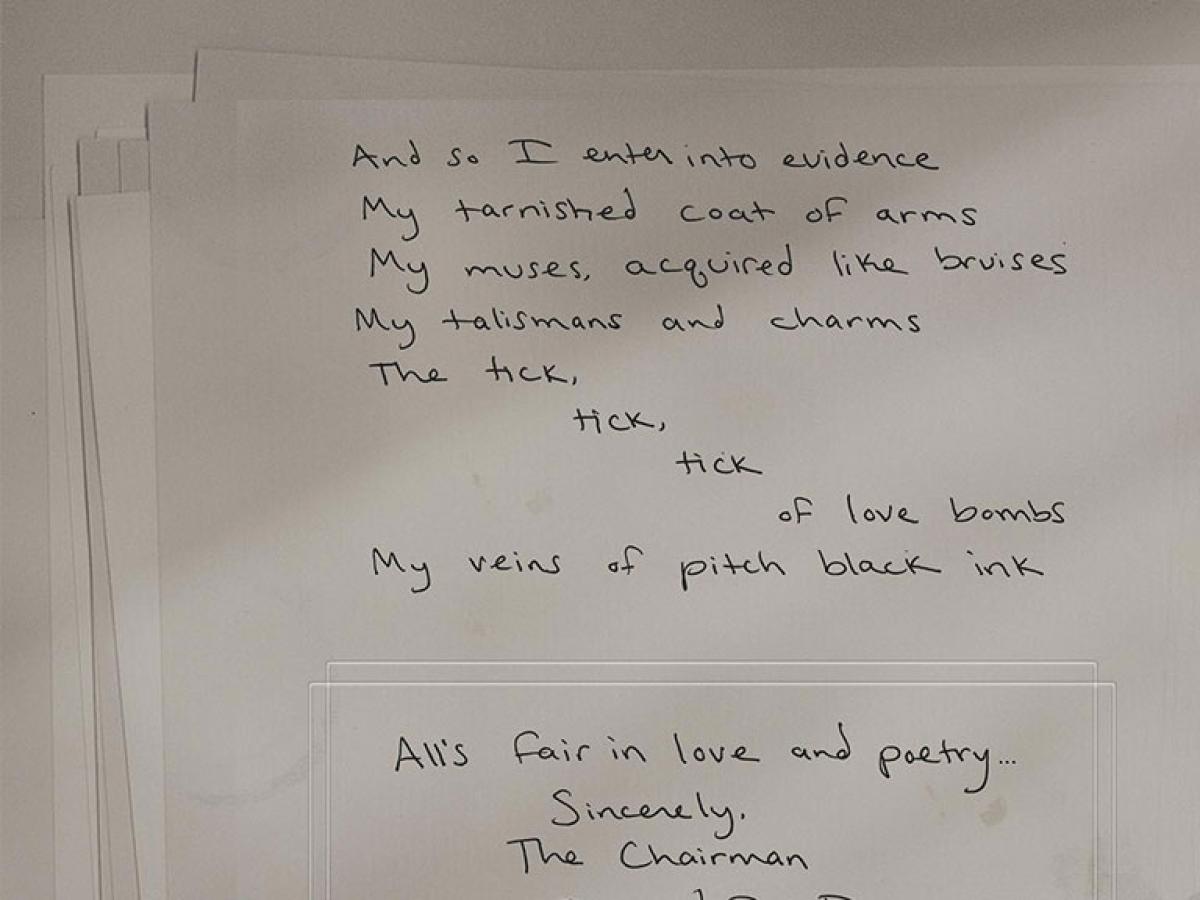 And so I enter into evidence
My tarnished coat of arms
My muses, acquired like bruises
My talismans and charms
The tick,
tick,
tick
of love bombs
My veins of pitch black ink
All's fair in love and poetry...
Sincerely,
The Chairman